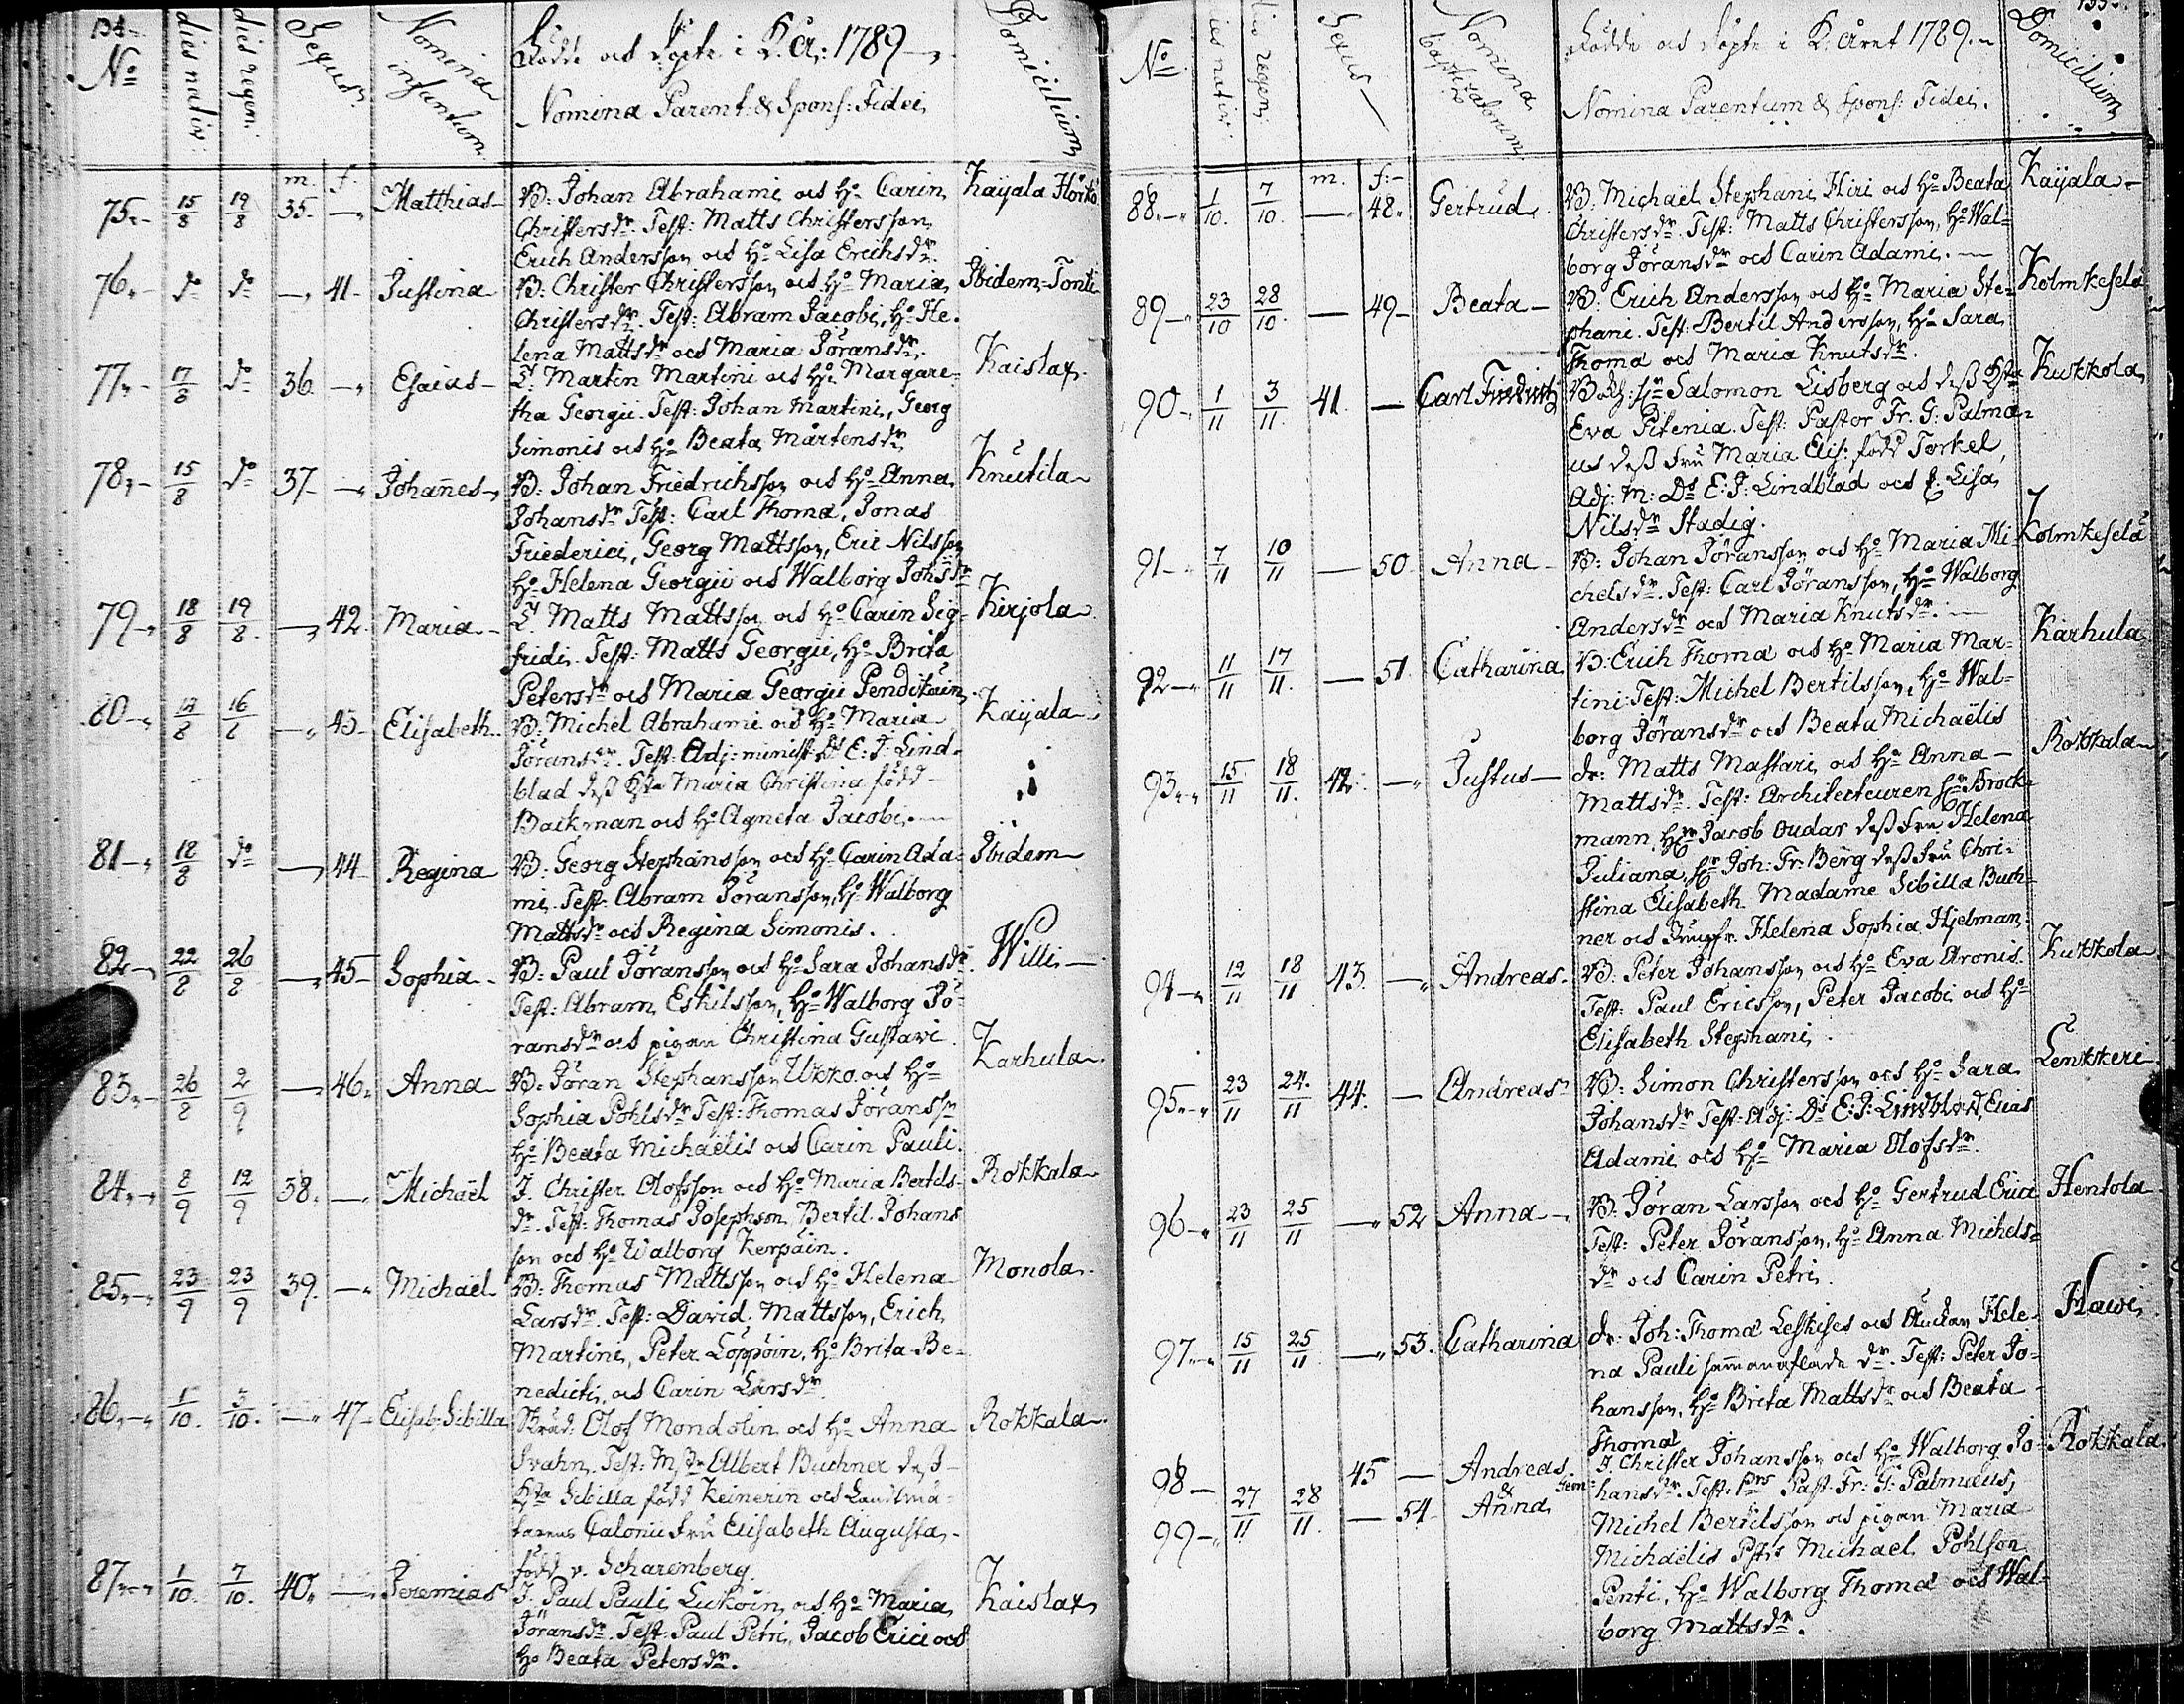 134.
No
dies nativ:
dies regen:
Sequs
Nomina infantum
Födde och döpte i K. År: 1789
Nomina Parent: & Spons: Fidei
Domicilium
m. f.
75. 15/8 19/8 35. — Matthias B: Johan Abrahami och Ho Carin Kaÿala
Christersdr. Test: Matts Christersson
Erich Andersson och Ho Lisa Erichsdr.
76. do do — 41. Justina B: Christer Christersson och Ho Maria Ibidem-Tonti
Christersdr. Test: Abram Jacobi, Ho He-
lena Mattsdr och Maria Göransdr.
77. 17/8 do 36. — Esaias Martin Martini och Ho Margare- Kaislax
tha Georgii. Test: Johan Martini, Georg
Simonis och Ho Beata Mårtensdr
78. 15/8 do 37. — Johannes B: Johan Friedrichsson och Ho Anna Knutila
Johansdr Test: Carl Thomæ, Jonas
Friederici, Georg Mattsson, Eric Nilsson
Ho Helena Georgii och Walborg Johsdr
79. 18/8 19/8 — 42. Maria Matts Mattsson och Ho Carin Sig- Kirjola
fridi. Test: Matts Georgii, Ho Brita
Petersdr och Maria Georgii Penditäin
80. 12/8 16/8 — 43. Elisabeth B: Michel Abrahami och Ho Maria Kaÿala
Göransdr. Test: Adj: minist: Ds E: J: Lind-
blad dess Maria Christina född
Backman och Ho Agneta Jacobi.
81. 18/8 do — 44. Regina B: Georg Stephansson och Ho Carin Ada- Ibidem
mi. Test: Abram Göransson, Ho Walborg
Mattsdr och Regina Simonis.
82. 22/8 26/8 — 45. Sophia B: Paul Göransson och Ho Sara Johansdr. Willi
Test: Abram Eskilsson, Ho Walborg Gö-
ransdr och pigan Christina Gustavi.
83. 26/8 2/9 — 46. Anna B: Göran Stephansson Ukko och Ho Karhula
Sophia Pohlsdr Test: Thomas Göransson
Ho Beata Michaëlis och Carin Pauli.
84. 8/9 12/9 38. — Michaël J. Christer Olofsson och Ho Maria Bertels- Rokkala
dr. Test: Thomas Josephson Bertil Johans
son och Ho Walborg Kerpäin.
85. 23/9 23/9 39. — Michaël B: Thomas Mattsson och Ho Helena Monola
Larsdr. Test: David Mattsson, Erich
Martini, Peter Loppöin, Ho Brita Be-
nedicti och Carin Larsdr.
86. 1/10. 3/10. — 47. Elisab: Sibilla Olof Mondolin och Ho Anna Rokkala
Svahn. Test: Mstr Albert Buchner dess
Sibilla född Keinerin och Landtmä-
tarens Calonii Fru Elisabeth Augusta
född v. Scharenberg.
87. 1/10. 7/10. 40. — Jeremias J. Paul Pauli Lukoin och Ho Maria Kaislax
Göransdr. Test: Paul Petri, Jacob Erici och
Ho Beata Petersdr.
135.
No
dies nativ:
dies regen:
Sexus
Nomina baptisatorum
Födde och döpte i K: Året 1789.
Nomina Parentum & Spons: Fidei.
Domicilium
m. f:
88. 1/10. 7/10. — 48. Gertrud B: Michaël Stephani Hiri och Ho Beata Kaÿala
Christersdr. Test: Matts Christersson, Ho Wal-
borg Göransdr och Carin Adami.
89. 23/10 28/10. — 49. Beata B: Erich Andersson och Ho Maria Ste- Kolmkeselä
phani. Test: Bertil Andersson, Ho Sara
Thomæ och Maria Knutsdr.
90. 1/11 3/11. 41. — Carl Friedrich Salomon Lisberg och dess Kukkola
Eva Pitenia. Test: Pastor Fr. G: Palmæ-
us dess Fru Maria Elis: född Torkel,
Adj: M: Ds E: J: Lindblad och Lisa
Nilsdr Stadig.
91. 7/11 10/11 — 50. Anna B: Johan Göransson och Ho Maria Mi- Kolmkeselä
chelsdr. Test: Carl Göransson, Ho Walborg
Andersdr och Maria Knutsdr.
92. 11/11 17/11. — 51. Catharina B: Erich Thomæ och Ho Maria Mar- Karhula
tini: Test: Michel Bertilsson, Ho Wal-
borg Göransdr och Beata Michaëlis
93. 15/11 18/11. 42. — Justus dr: Matts Mattari och Ho Anna Rokkala
Mattsdr. Test: Architecteuren Hr Brock-
mann, Hr Jacob Oudar dess Fru Helena
Juliana, Hr Joh: Fr: Berg dess Fru Chri-
stina Elisabeth. Madame Sibilla Buch-
ner och Jungfr. Helena Sophia Hjelman.
94. 12/11 18/11 43. — Andreas B: Peter Johansson och Ho Eva Aronis Kukkola
Test: Paul Ericsson, Peter Jacobi och Ho
Elisabeth Stephani.
95. 23/11 24./11 44. — Andreas B: Simon Christersson och Ho Sara Lenkkeri
Johansdr Test: Adj: Ds E: J: Lindblad, Elias
Adami och Ho Maria Olofsdr.
96. 23/11 25/11 — 52 Anna B: Göran Larsson och Ho Gertrud Erici Hentola
Test: Peter Göransson, Ho Anna Michels-
dr och Carin Petri.
97. 15/11 25/11. — 53. Catharina dr: Joh: Thomæ Leskises och Änckan Hele- Hawi
na Pauli sammanaflade dr. Test: Peter Jo-
hansson, Ho Brita Mattsdr och Beata
Thomæ
98. 45 — Andreas J Christer Johansson och Ho Walborg Jo- Rokkala
27/11 28/11. & Gem: hansdr. Test: Past. Fr: G: Palmæus,
99. — 54. Anna Michel Bertilsson och pigan Maria
Michaëlis Michael Pohlson
Penti, Ho Walborg Thomæ och Wal-
borg Mattsdr.